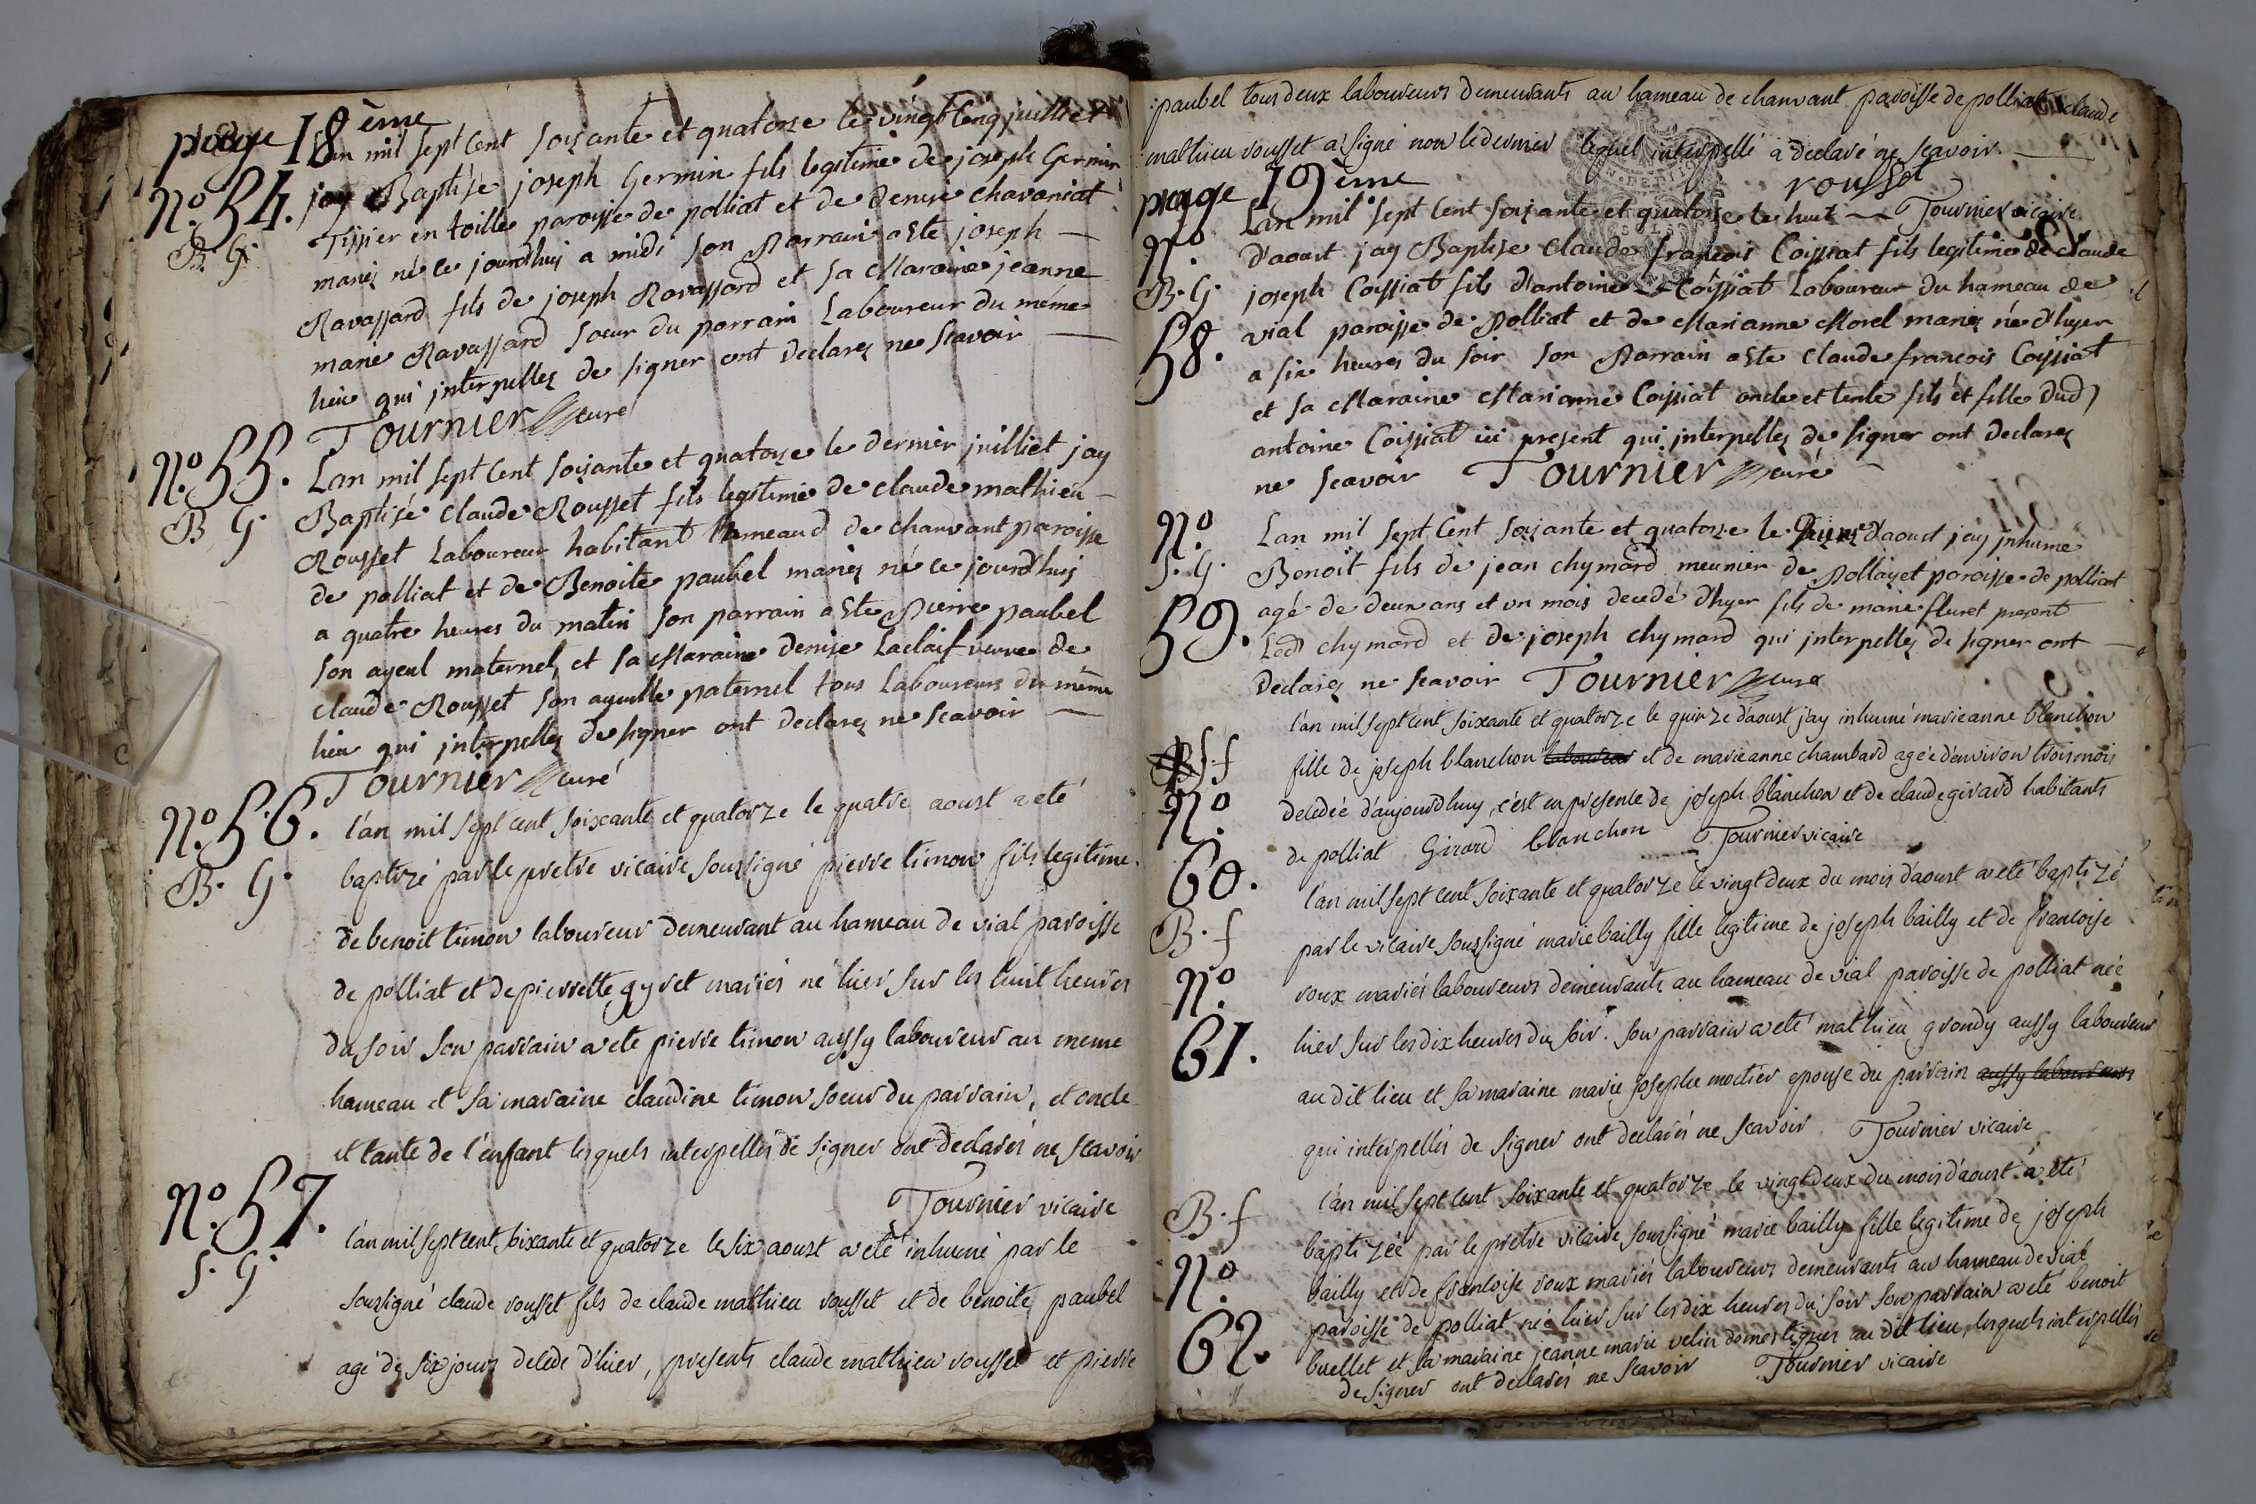 page 18ème
Lan mil sept cent soixante et quatorze le vingt cinq juilliet
No. 54.
jay Baptisé joseph Germin fils legitime de joseph Germin
B. G.
Tissier en toille paroisse de polliat et de denise chavaniat
mariez né ce jourdhuy a midi son Parrain a Ete joseph
Ravassard fils de joseph Ravassard et sa Maraine jeanne
marie Ravassard soeur du parrain Laboureur du meme
lieu qui interpellez de signer ont declarez ne scavoir
Tournier curé
No. 55.
Lan mil sept cent soixante et quatorze le dernier juilliet jay
B G.
Baptisé claude Rousset fils legitime de claude mathieu
Rousset Laboureur habitant hameaud de chanvant paroisse
de polliat et de Benoite paubel mariez né ce jourdhuy
a quatre heures du matin son parrain a Ete Pierre paubel
son ayeul maternel et sa Maraine denise Laclaif veuve de
claude Rousset son ayeulle paternel tous Laboureurs du même
lieu qui interpellez de signer ont declarez ne scavoir
Tournier curé
No. 56.
l'an mil sept cent soixante et quatorze le quatre aoust a eté
B. G.
baptizé par le pretre vicaire soussigné pierre timon fils legitime
de benoit timon laboureur demeurant au hameau de vial paroisse
de polliat et de pierrette gyret mariés né hier sur les huit heures
du soir son parrain a eté pierre timon aussy laboureur au meme
hameau et sa maraine claudine timon soeur du parrain, et oncle
et tante de l'enfant lesquels interpellés de signer ont declarés ne scavoir
Tournier vicaire
No. 57.
l'an mil sept cent soixante et quatorze le six aoust a eté inhumé par le
S. G.
soussigné claude rousset fils de claude mathieu rousset et de benoite paubel
agé de six jours decedé d'hier, presents claude mathieu rousset et pierre
paubel tous deux laboureurs demeurants au hameau de chanvant paroisse de polliat claude
mathieu rousset a signé non le dernier lequel interpellé a declaré ne scavoir.
rousset
page 19ème
Lan mil sept cent soixante et quatorze le huit Tournier vicaire
No.
d'aoust jay Baptise Claude francois Coissiat fils legitime de claude
B. G.
joseph Coissiat fils d'antoine Coissiat Laboureur du hameau de
58.
vial paroisse de Polliat et de Marianne Morel mariez né d'hyer
a six heures du soir son Parrain a Ete Claude francois Coissiat
et sa Maraine Marianne Coissiat oncle et tente fils et fille dud
antoine Coissiat ici present qui interpellez de signer ont declarez
ne scavoir Tournier curé
No.
Lan mil sept cent soixante et quatorze le d'aoust jay inhume
S. G.
Benoit fils de jean chymard meunier de Pollayet paroisse de polliat
59.
agé de deux ans et un mois decedé d'hyer fils de marie fluret present
Led chymard et de joseph chymard qui interpellez de signer ont
declarez ne scavoir Tournier curé
l'an mil sept cent soixante et quatorze le quinze d'aoust j'ay inhumé marieanne blanchon
S. f
fille de joseph blanchon laboureur et de marieanne chambard agée d'environ trois mois
No.
decedeé d'aujourdhuy, c'est en presence de joseph blanchon et de claude girard habitants
60.
de polliat Girard blanchon Tournier vicaire
l'an mil sept cent soixante et quatorze le vingt deux du mois d'aoust a eté baptizé
B. f
par le vicaire soussigné marie bailly fille legitime de joseph bailly et de francoise
No.
roux mariés laboureurs demeurants au hameau de vial paroisse de polliat neé
61.
hier sur les dix heures du soir. son parrain a eté mathieu grondy aussy laboureur
au dit lieu et sa maraine marie josephe moctier epouse du parrain aussy laboureurs
qui interpellés de signer ont declarés ne scavoir Tournier vicaire
l'an mil sept cent soixante et quatorze le vingt deux du mois d'aoust a eté
B. f
baptizeé par le pretre vicaire soussigné marie bailly fille legitime de joseph
No.
bailly et de francoise roux mariés laboureurs demeurants au hameau de vial
paroisse de polliat neé hier sur les dix heures du soir son parrain a eté benoit
62.
buellet et sa maraine jeanne marie velin domestiques au dit lieu, lesquels interpellés
de signer ont declarés ne scavoir Tournier vicaire